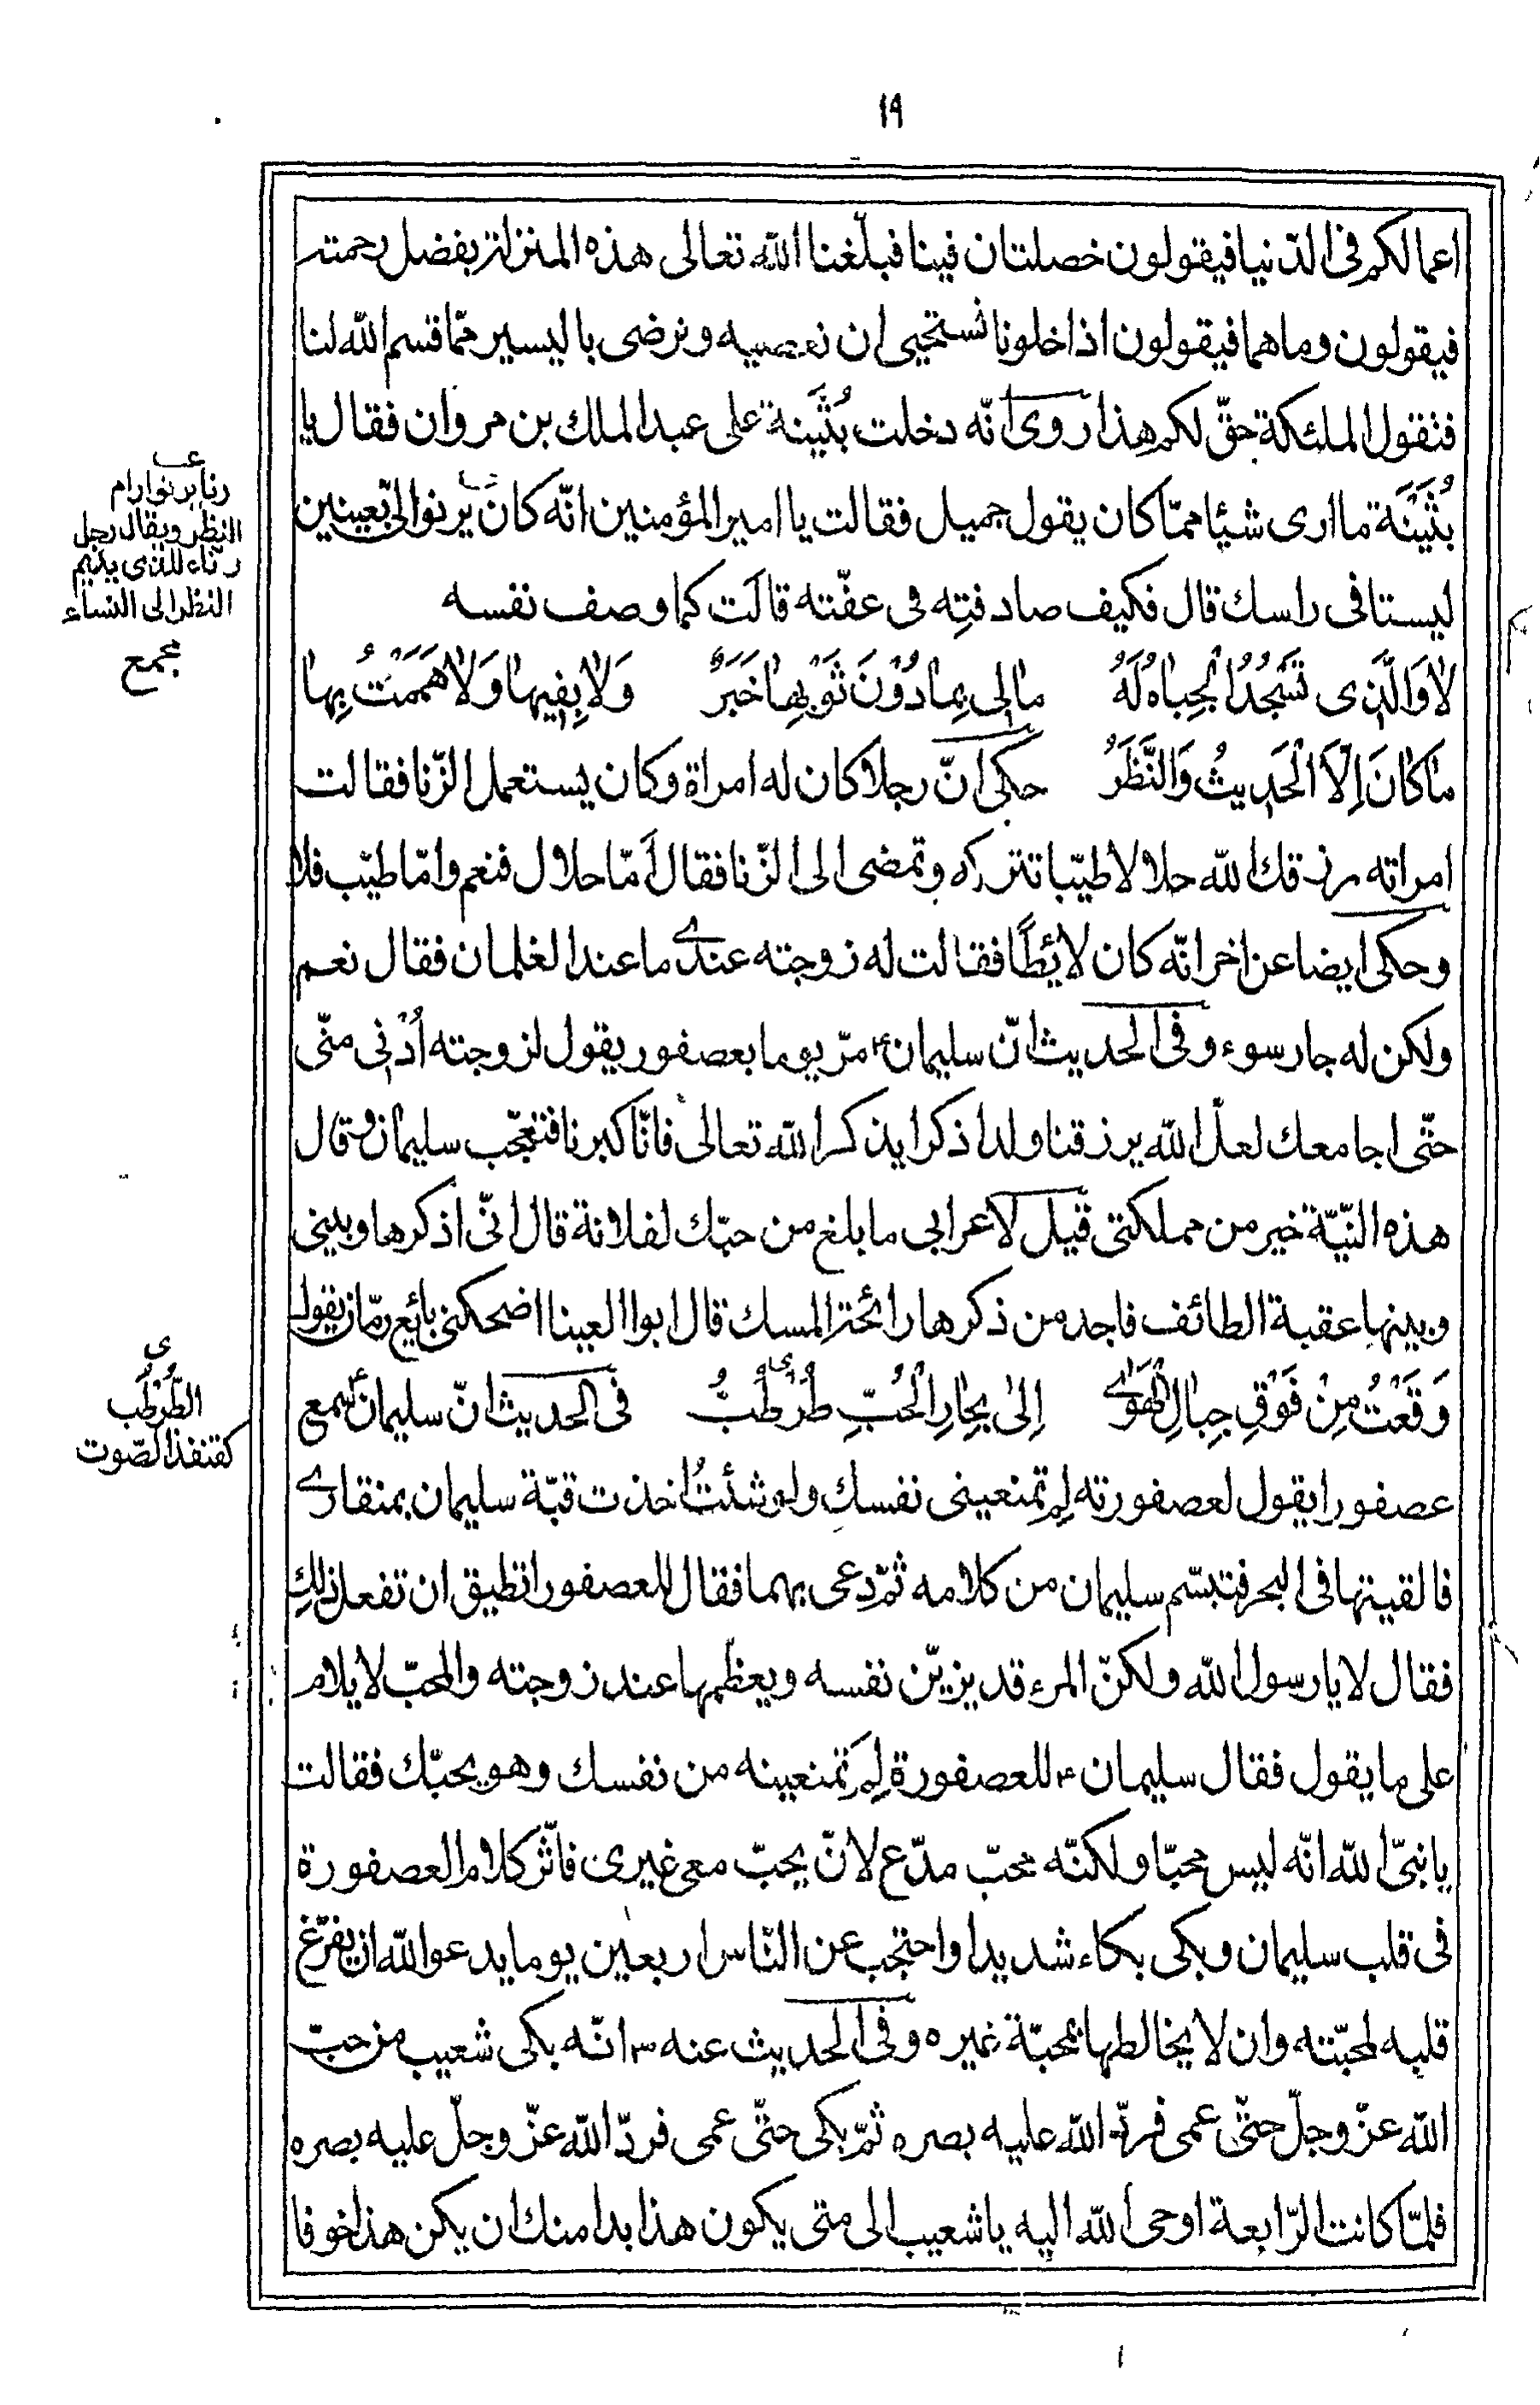 ١٩
اعمالكم فى الدّنيا فيقولون خصلتان فينا فبلّغنا الله تعالى هذه المنزلة بفضل رحمته
فيقولون وما هما فيقولون اذا خلونا نستحيى ان نعصيه ونرضى باليسير ممّا قسم الله لنا
فتقول الملئكة حقّ لكم هذا روى انّه دخلت بُثَينة على عبد الملك بن مروان فقال يا
بُثَيْنَة ما ارى شيئا ممّا كان يقول جميل فقالت يا امير المؤمنين انّه كان يرنوا الىّ بعينين
ليستا فى راسك قال فكيف صادفتِه فى عفّته قالَت كما وصف نفسه
لاٰ وَالَّذى تَسْجُدُ الْجِباهُ لَهُ مالى بِمادُوْنَ ثَوْبِهٰا خَبَرٌ وَلاٰ بِفِيهٰا وَلاٰ هَمَمْتُ بِهٰا
مٰا كٰانَ اِلّاَ الْحَدِيثُ وَالنَّظَرُ حكى انّ رجلا كان له امراة وكان يستعمل الزّنا فقالت
امراته رزقك الله حلالا طيّبا تتركه وتمضى الى الزّنا فقال اَمّا حلال فنعم وامّا طيّب فلا
وحكى ايضا عن اخر انّه كان لائطًا فقالت له زوجته عندى ما عند الغلمان فقال نعم
ولكن له جار سوء وفى الحديث انّ سليمان ع مرّ يوما بعصفور يقول لزوجته اُدْنى منّى
حتّى اجامعك لعلّ الله يرزقنا ولدا ذكرا يذكر الله تعالى فانّا كبرنا فتعجّب سليمان وقال
هذه النيّة خير من مملكتى قيل لاعرابى ما بلغ من حبّك لفلانة قال انّى اذكرها وبينى
وبينها عقبة الطائف فاجد من ذكرها رائحة المسك قال ابوا العينا اضحكنى بائع رمّان يقول
وَقَعْتُ مِنْ فَوْقِ جِبٰالِ الْهَوٰى اِلىٰ بِحٰارِ الْحُبِّ طُرْطُبُّ فى الحديث انّ سليمان ع سمع
عصفورا يقول لعصفورته لِم تمنعينى نفسكِ ولو شئتُ اخذت قبّة سليمان بمنقارى
فالقيتها فى البحر فتبسّم سليمان من كلامه ثمّ دعى بهما فقال للعصفور اتطيق ان تفعل ذلك
فقال لا يا رسول الله ولكنّ المرء قد يزيّن نفسه ويعظّمها عند زوجته والمحبّ لا يلام
على ما يقول فقال سليمان ع للعصفورة لِمَ تمنعينه من نفسك وهو يحبّك فقالت
يا نبىّ الله انّه ليس محبّا ولكنّه محبّ مدّع لانّ يحبّ معى غيرى فاثّر كلام العصفورة
فى قلب سليمان وبكى بكاء شديدا واحتجب عن النّاس اربعين يوما يدعو الله ان يفرّغ
قلبه لمحبّته وان لا يخالطها بمحبّة غيره وفى الحديث عنه ص انّه بكى شعيب من حبّ
الله عزّ وجلّ حتّى عمى فردّ الله عليه بصره ثمّ بكى حتّى عمى فردّ الله عزّ وجلّ عليه بصره
فلمّا كانت الرّابعة اوحى الله اليه يا شعيب الى متى يكون هذا بدا منك ان يكن هذا خوفا
رنا يرنوا رام
النظر ويقال رجل
رنّاء للذى يديم
النظر الى النساء
مجمع
ى
الطُّرْطُب
كقنفذ الصّوت